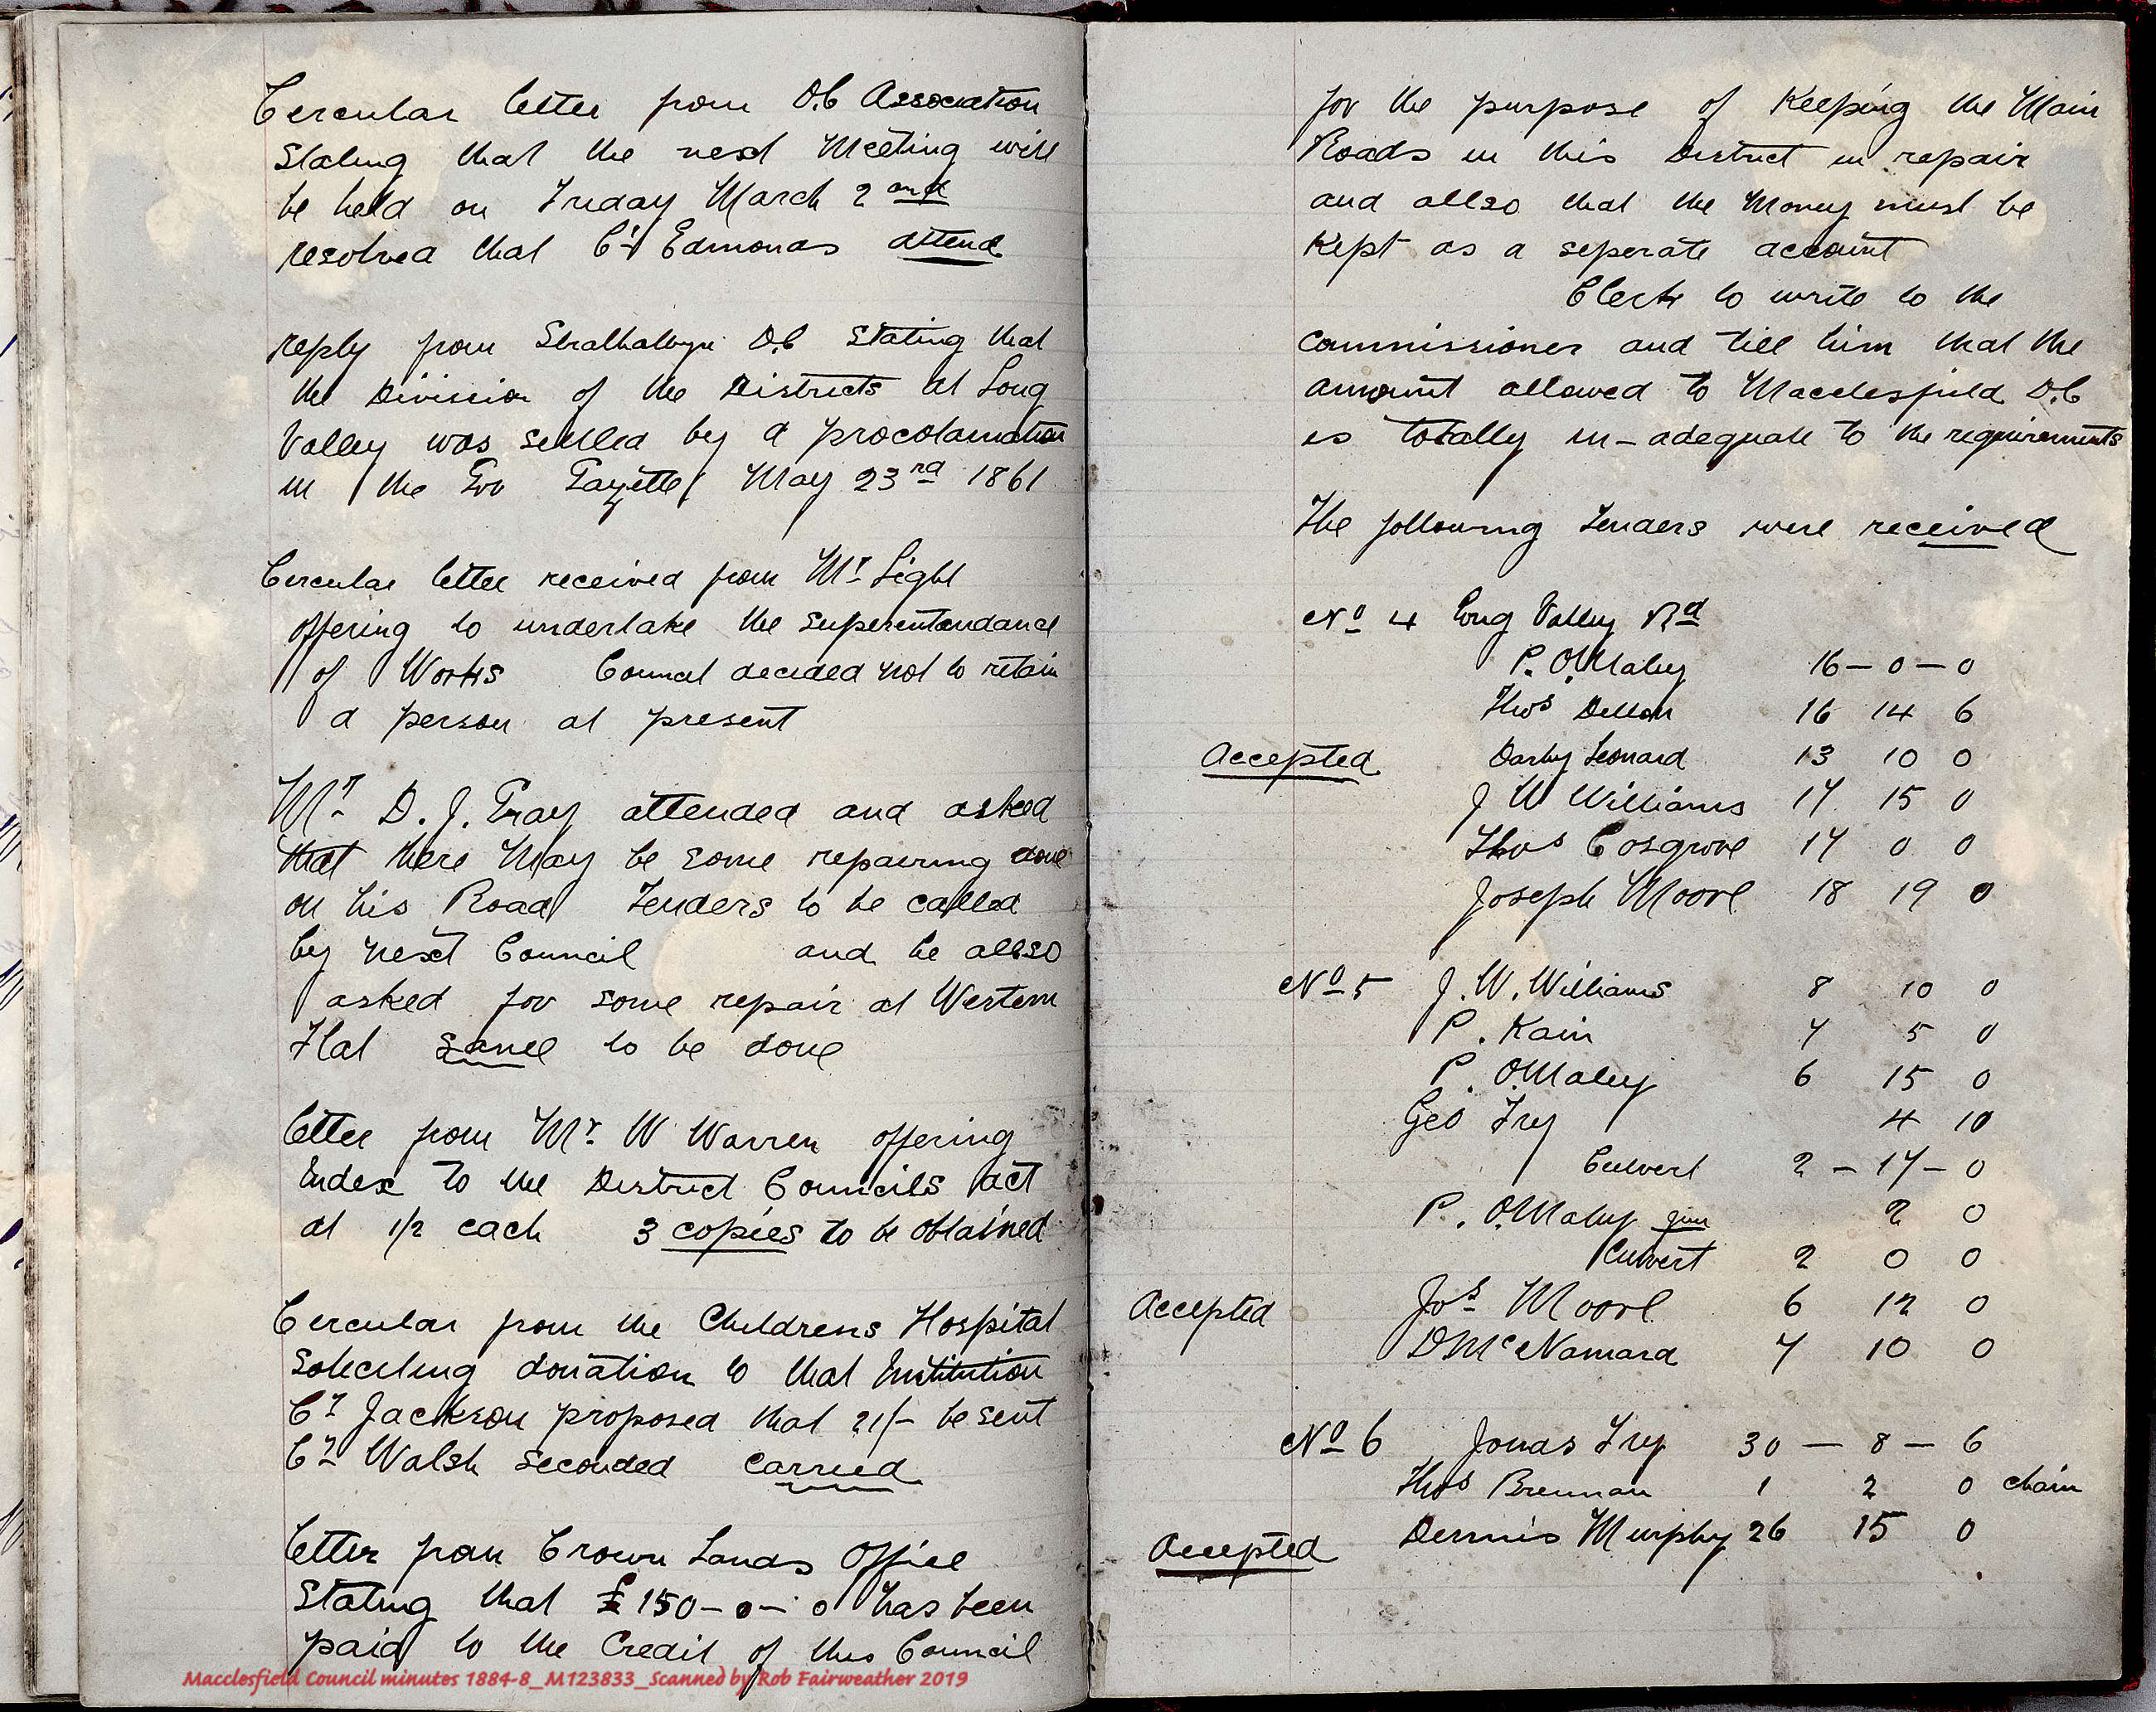 Cercular letter from D.C Association
Stating that the next Meeting will
be held on Friday March 2 ond
resolved that Cr Edmonds attend
reply from Strathalbyn D.C Stating that
the Division of the Districts at Long
Valley was settled by a procolamation
in the Gov Gazette May 23rd 1861
Cercular letter received from Mr Light
offering to undertake the Superentandance
of Works Council decided not to retain
a person at present
Mr D. J. Gray attended and asked
that there May be some repairing done
on his Road Tenders to be called
by next Council and he allso
asked for some repair at Western
Flat same to be done
letter from Mr W Warren offering
Index to the District Councils act
at 1/2 each 3 copies to be obtained
Cercular from the Childrens Hospital
Soliciting donation to that Institution
Cr Jackson proposed that 21/- be sent
Cr Walsh seconded carried
letter from Crown Lands Office
Stating that £150-0-0 has been
paid to the Credit of this Council
Macclesfield Council minutes 1884-8_M123833_Scanned by Rob Fairweather 2019
for the purpose of Keeping the Main
Roads in this District in repair
and allso that the Money must be
Kept as a seperate account
Clerk to write to the
Commissioner and till him that the
amount allowed to Macclesfield D.C
is totally in-adequate to the requirements
The following Tenders were received
No 4 Long Valley Rd
P. O'Maley 16-0-0
Thos Dellon 16 14 6
Accepted Darby Leonard 13 10 0
J W Williams 17 15 0
Thos Cosgrove 17 0 0
Joseph Moore 18 19 0
No 5 J. W. Williams 8 10 0
P. Kain 7 5 0
P. O'Maley 6 15 0
Geo Fry 4 10
Culvert 2-17-0
P. O'Maley jun 2 0
Culvert 2 0 0
Accepted Jos Moore 6 12 0
D McNamara 7 10 0
No 6 Jonas Fry 30-8-6
Thos Brennan 1 2 0 chain
Accepted Dennis Murphy 26 15 0